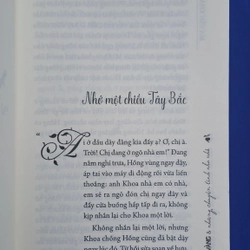 Nhớ một chiều Tây Bắc
Ai ở đâu dầy đằng kia đấy ạ? Ơi, chị à.
Trời! Chị đang ở ngõ nhà em!" Đang
nằm nghỉ trưa, Hồng vùng ngay dậy,
áp tai vào máy di động rồi vừa liên
thoắng: anh Khoa nhà em có nhà,
em sẽ ra ngõ đón chị ngay đây và
đẩy cửa buồng hấp tấp đi ra, không
kịp nhắn lại cho Khoa một lời.
Không nhắn lại một lời, nhưng
Khoa chồng Hồng cũng đã bật dậy
ngay lúc đó. Từ hồi sửa soạn về hưu